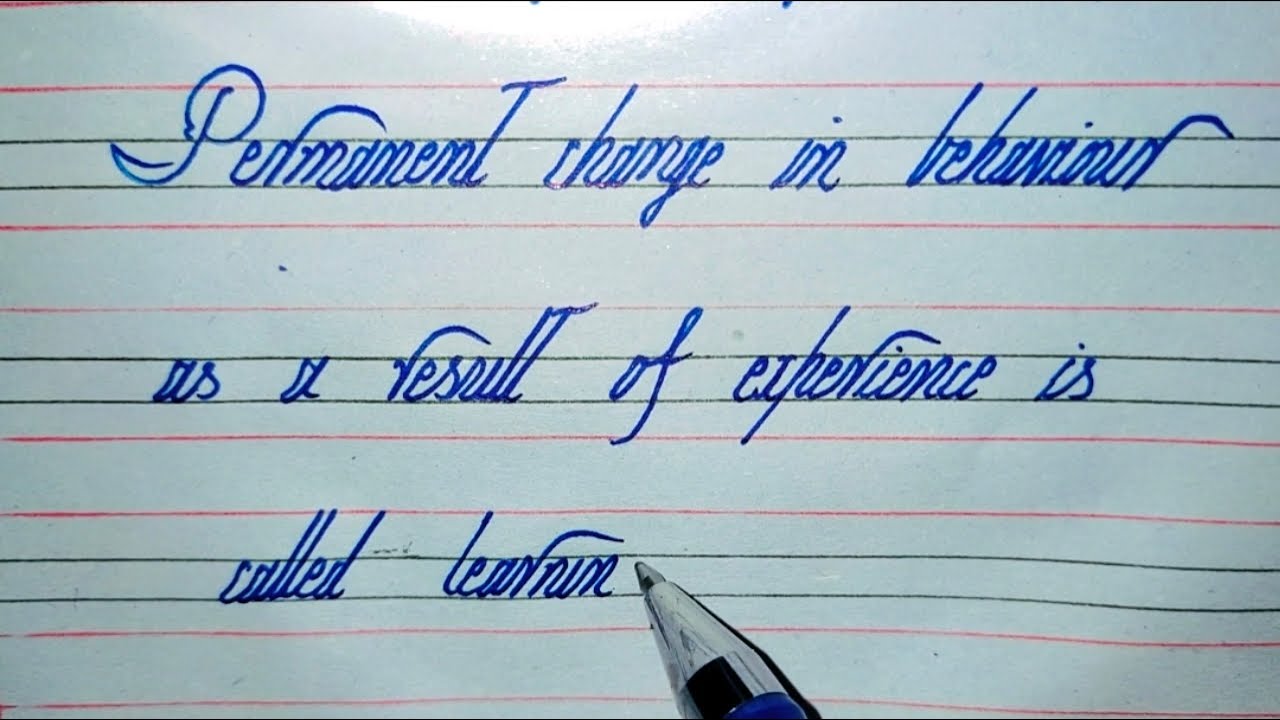 Permanent change in behaviour
as a result of experience is
called learnin